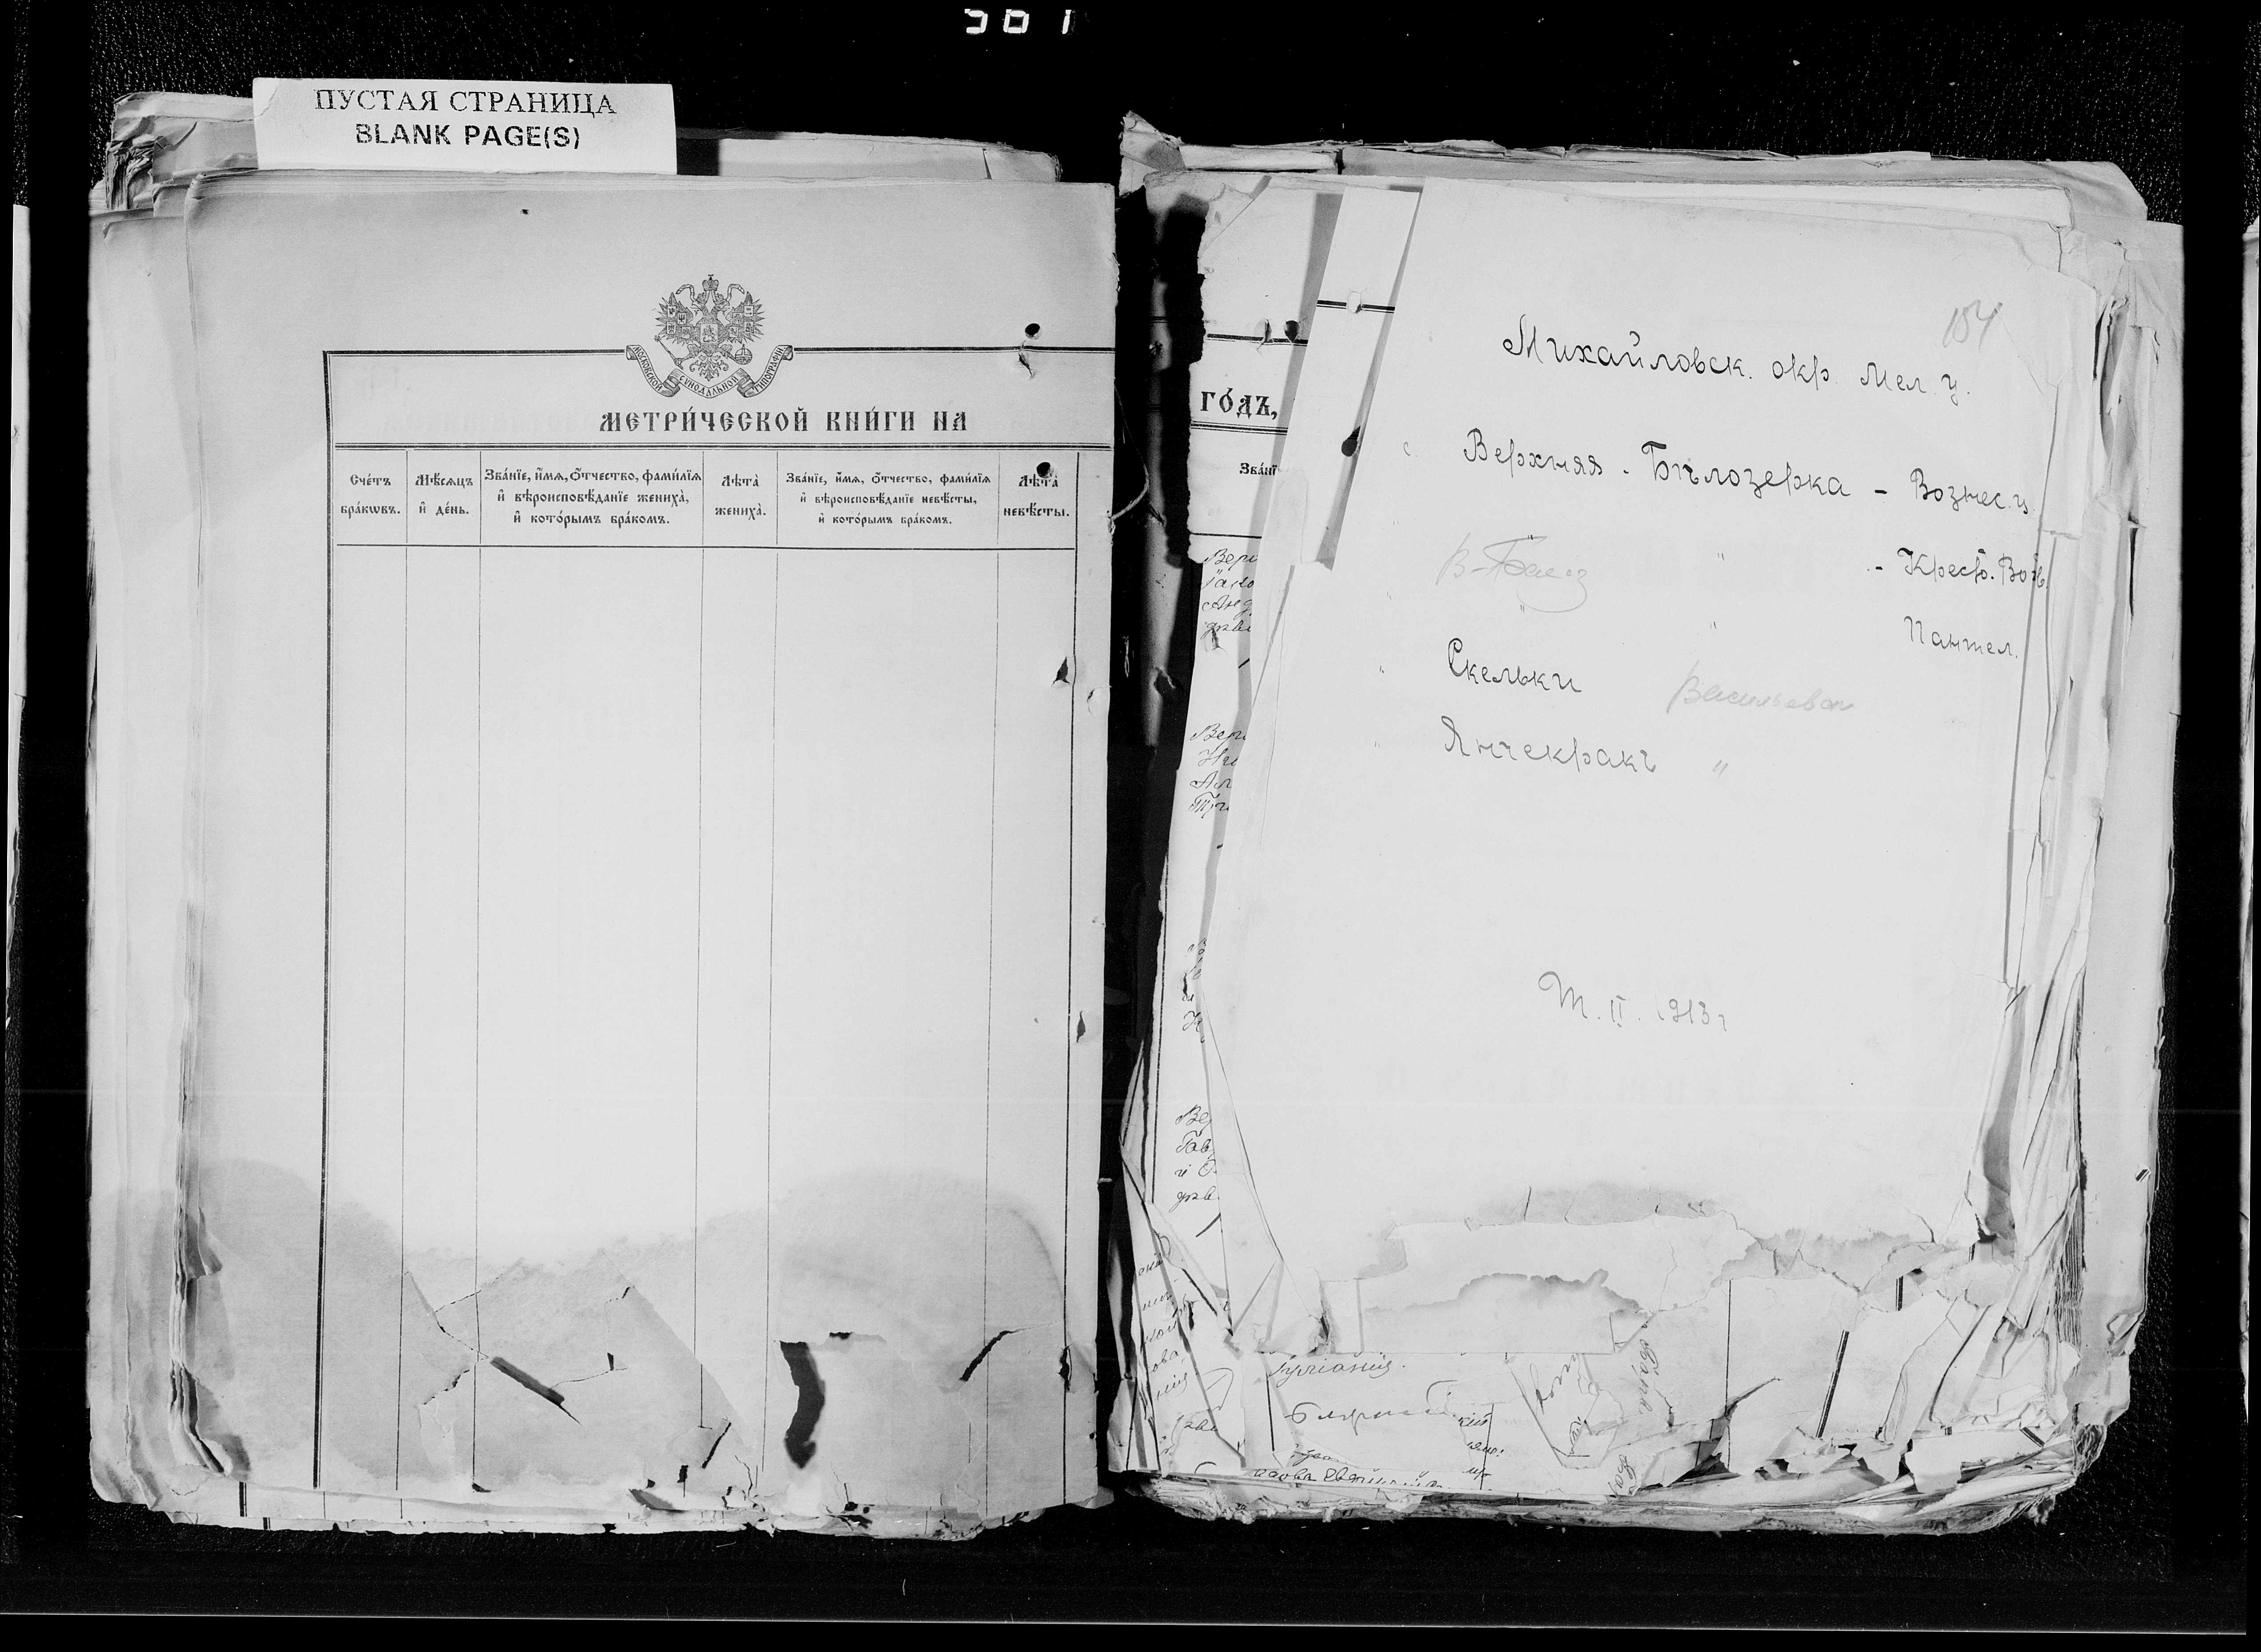 301
ПУСТАЯ СТРАНИЦА
BLANK PAGE(S)
МОСКОВСКОЙ СѴНОДАЛЬНОЙ ТИПОГРАФІИ
МЕТРИ́ЧЕСКОЙ КНИ́ГИ НА
Сче́тъ бра́кѡвъ.
Мѣ́сѧцъ и҆ де́нь.
Зва́нїе, и҆́мѧ, ѻ҆́тчество, фами́лїѧ и҆ вѣроисповѣ́данїе жениха̀, и҆ кото́рымъ бра́комъ.
Лѣта̀ жениха̀.
Зва́нїе, и҆́мѧ, ѻ҆́тчество, фами́лїѧ и҆ вѣроисповѣ́данїе невѣ́сты, и҆ кото́рымъ бра́комъ.
Лѣта̀ невѣ́сты.
ГО́ДЪ,
Зва́нї
154
Михайловск. окр. Мел. у.
с Верхняя - Бѣлозерка - Вознес. ц.
В-Белоз " - Крест. Возв.
" " Пантел.
" Скельки Васильевск
" Янчекракъ "
Т. II. 1913 г